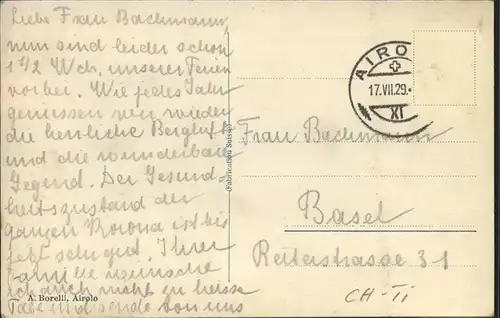 Liebe Frau Bachmann,
nun sind leider schon
1 1/2 Wch. unserer Ferien
vorbei. Wie jedes Jahr
geniessen wir wieder
die herrliche Bergluft
und die wunderbare
Gegend. Der Gesund-
heitszustand der
ganzen Korona ist bis
jetzt sehr gut. Ihrer
Familie wünsche
ich auch nicht zu heisse
Tage und sende von uns
A. Borelli, Airolo
(Fabrication Suisse)
AIROLO
17.VII.29.
XI
Frau Bachmann
Basel
Reiterstrasse 31
CH-Ti